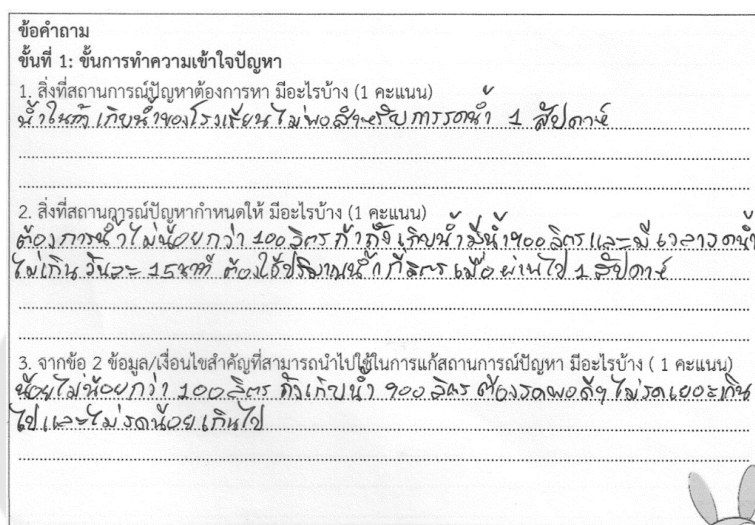 ข้อคำถาม
ขั้นที่ 1: ขั้นการทำความเข้าใจปัญหา
1. สิ่งที่สถานการณ์ปัญหาต้องการหา มีอะไรบ้าง (1 คะแนน)
น้ำในถังเก็บน้ำของโรงเรียนไม่พอสำหรับการรดน้ำ 1 สัปดาห์
2. สิ่งที่สถานการณ์ปัญหากำหนดให้ มีอะไรบ้าง (1 คะแนน)
ต้องการน้ำไม่น้อยกว่า 100 ลิตร ถ้าถังเก็บน้ำมีน้ำ 900 ลิตร และมีเวลารดน้ำ
ไม่เกินวันละ 15 นาที ต้องใช้ปริมาณน้ำกี่ลิตรเมื่อผ่านไป 1 สัปดาห์
3. จากข้อ 2 ข้อมูล/เงื่อนไขสำคัญที่สามารถนำไปใช้ในการแก้สถานการณ์ปัญหา มีอะไรบ้าง ( 1 คะแนน)
น้อยไม่น้อยกว่า 100 ลิตร ถังเก็บน้ำ 900 ลิตร ต้องรดพอดีๆ ไม่รดเยอะเกิน
ไปและไม่รดน้อยเกินไป